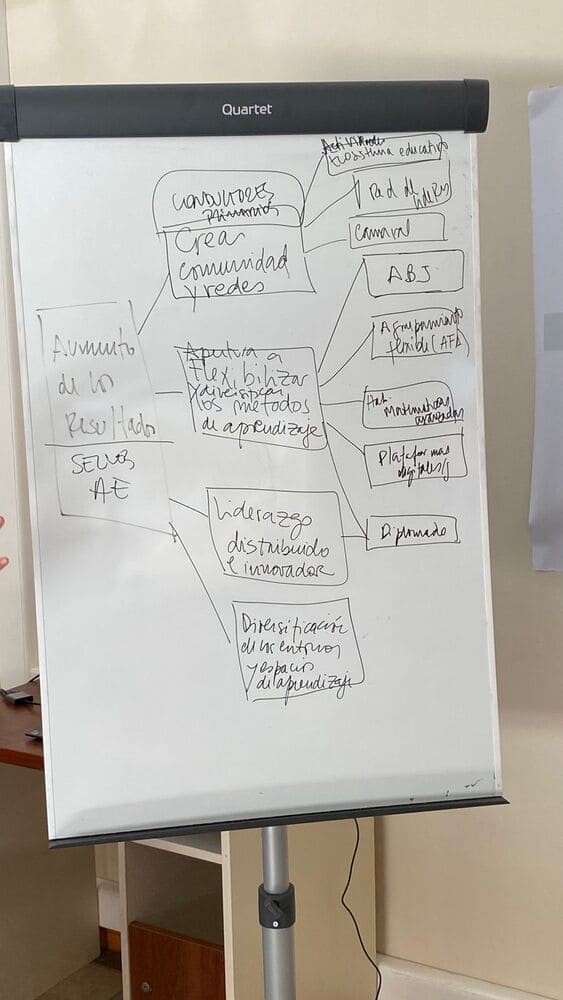 Quartet
Ecosistema educativo
CONDUCTORES
PRIMARIOS
Crear
comunidad
y redes
red de
líderes
Carnaval
ABJ
Aumento
de los
Resultados
SELLOS
AE
Apertura a
Flexibilizar
y diversificar
los métodos
de aprendizaje
Agrupamiento
flexible (AFA)
matemáticas
avanzadas
Plataformas
digitales
Liderazgo
distribuido
e innovador
Diplomado
Diversificación
de los entornos
y espacios
de aprendizaje